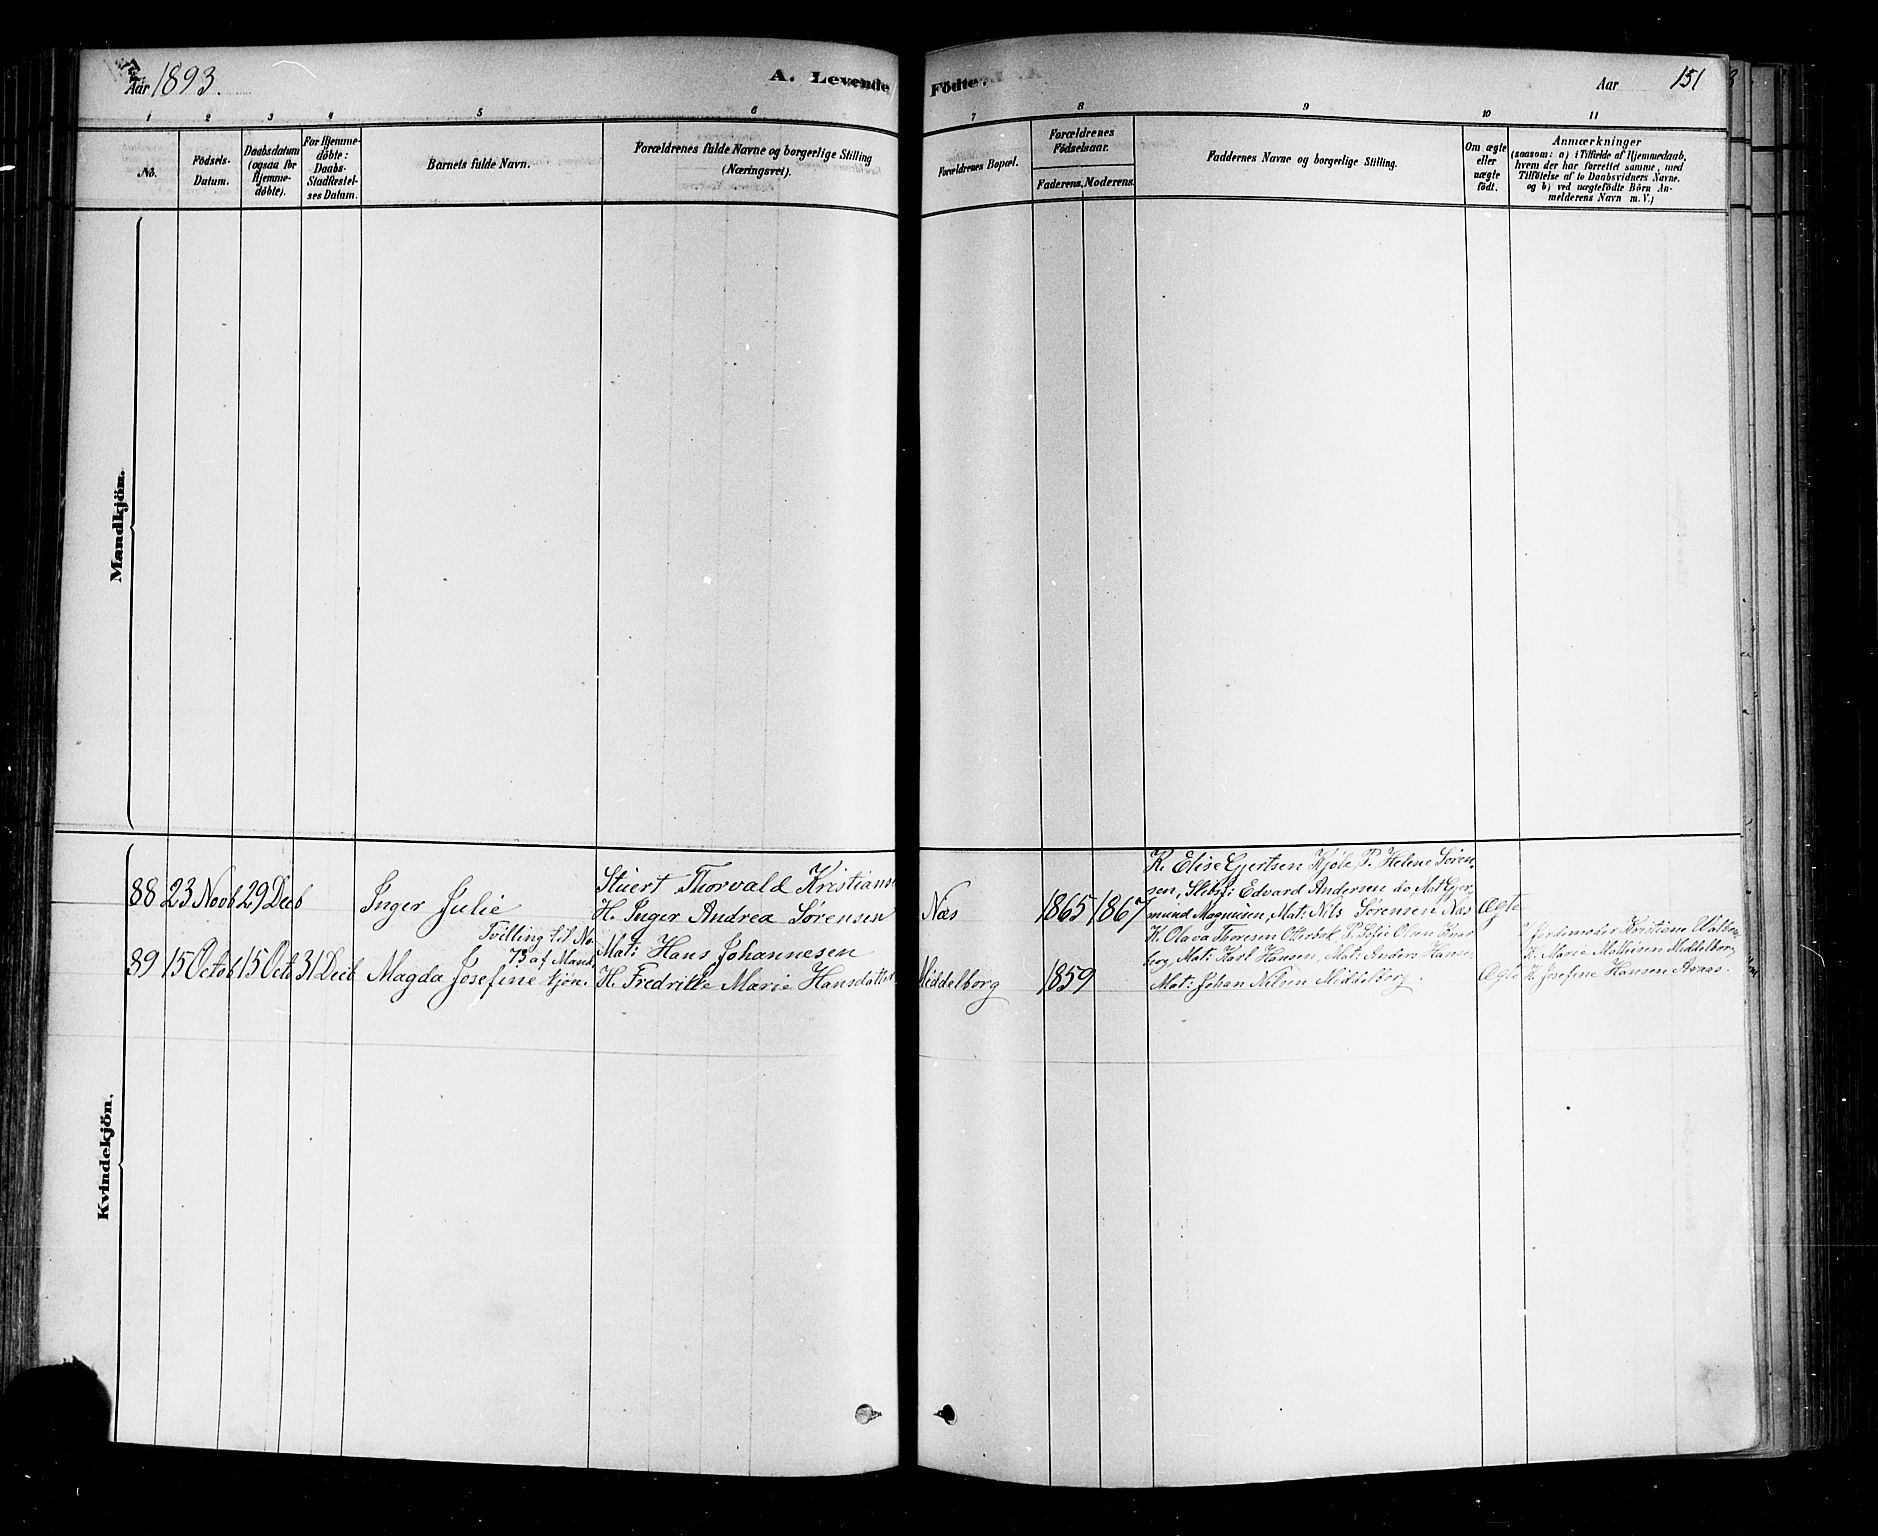 Aar 1893.
A. Levende
Födte.
Aar
151
1
2
3
4
5
6
7
8
9
10
11
No.
Födsels-
Datum.
Daabsdatum
(ogsaa for
Hjemme-
döbte).
For Hjemme-
döbte:
Daabs-
Stadfæstel-
ses Datum.
Barnets fulde Navn.
Forældrenes fulde Navne og borgerlige Stilling
(Næringsvei).
Forældrenes Bopæl.
Forældrenes
Födselsaar.
Faderens.
Moderens.
Faddernes Navne og borgerlige Stilling.
Om ægte
eller
uægte
födt.
Anmærkninger
(saasom: a) i Tilfælde af Hjemmedaab,
hvem der har forrettet samme, med
Tilföielse af to Daabsvidners Navne.
og b) ved uægtefödte Börn An-
melderens Navn m. V.)
Mandkjön.
Kvindekjön.
88
23 Novb
29 Decb
Inger Julie
Stuert Thorvald Kristians
H. Inger Andrea Sørensen
Næs
1865
1867
K. Elise Gjertsen Kjøle, P. Helene Søren-
sen, Slibsf: Edvard Andersen do, Mat: Gjer-
mund Magnusen, Mat: Nils Sørensen Næs
Ægte
89
15 Octob
15 Octb
31 Decb
Tvilling til No.
73 af Mand-
Magda Josefine kjön.
Mat: Hans Johannesen
H. Fredrikke Marie Hansdatter
Middelborg
1859
K. Olava Thoresen Otterbek, P. Olsen
Mat: Karl Hansen, Mat: Anders Hansen
Mat: Johan Nilsen Middelborg.
Ægte
Jordemoder Kristiane
K. Marie Mathisen Middelborg
K. Josefine Hansen Araas.